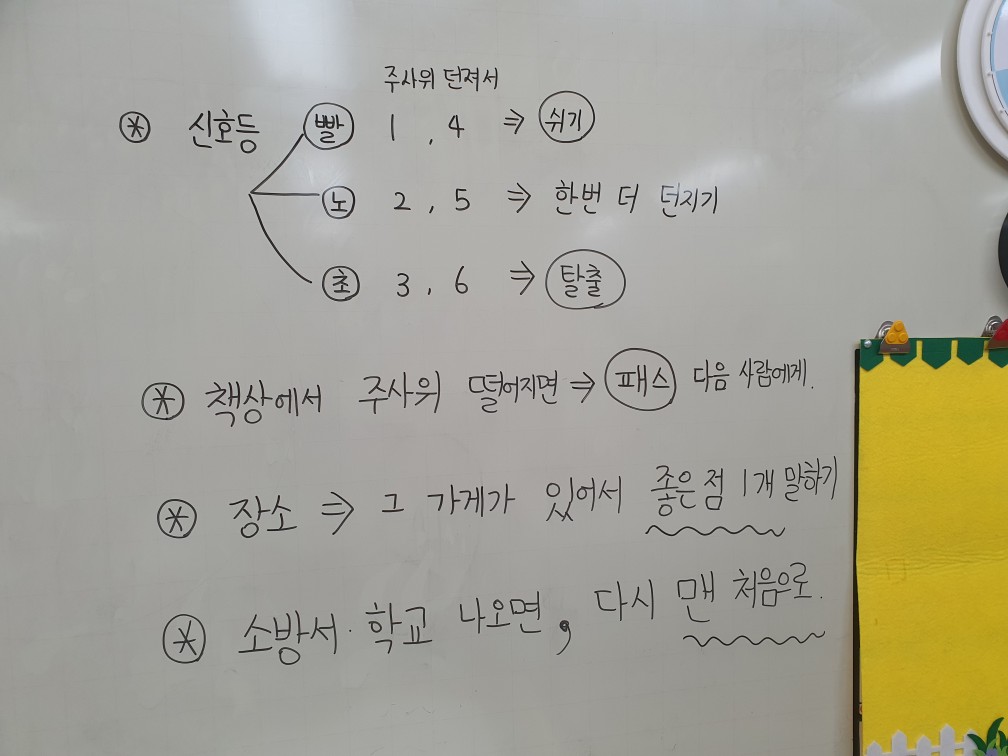 주사위 던져서
* 신호등 빨 1, 4 ⇒ 쉬기
노 2, 5 ⇒ 한번 더 던지기
초 3, 6 ⇒ 탈출
* 책상에서 주사위 떨어지면 ⇒ 패스 다음 사람에게.
* 장소 ⇒ 그 가게가 있어서 좋은점 1개 말하기
* 소방서·학교 나오면, 다시 맨 처음으로.